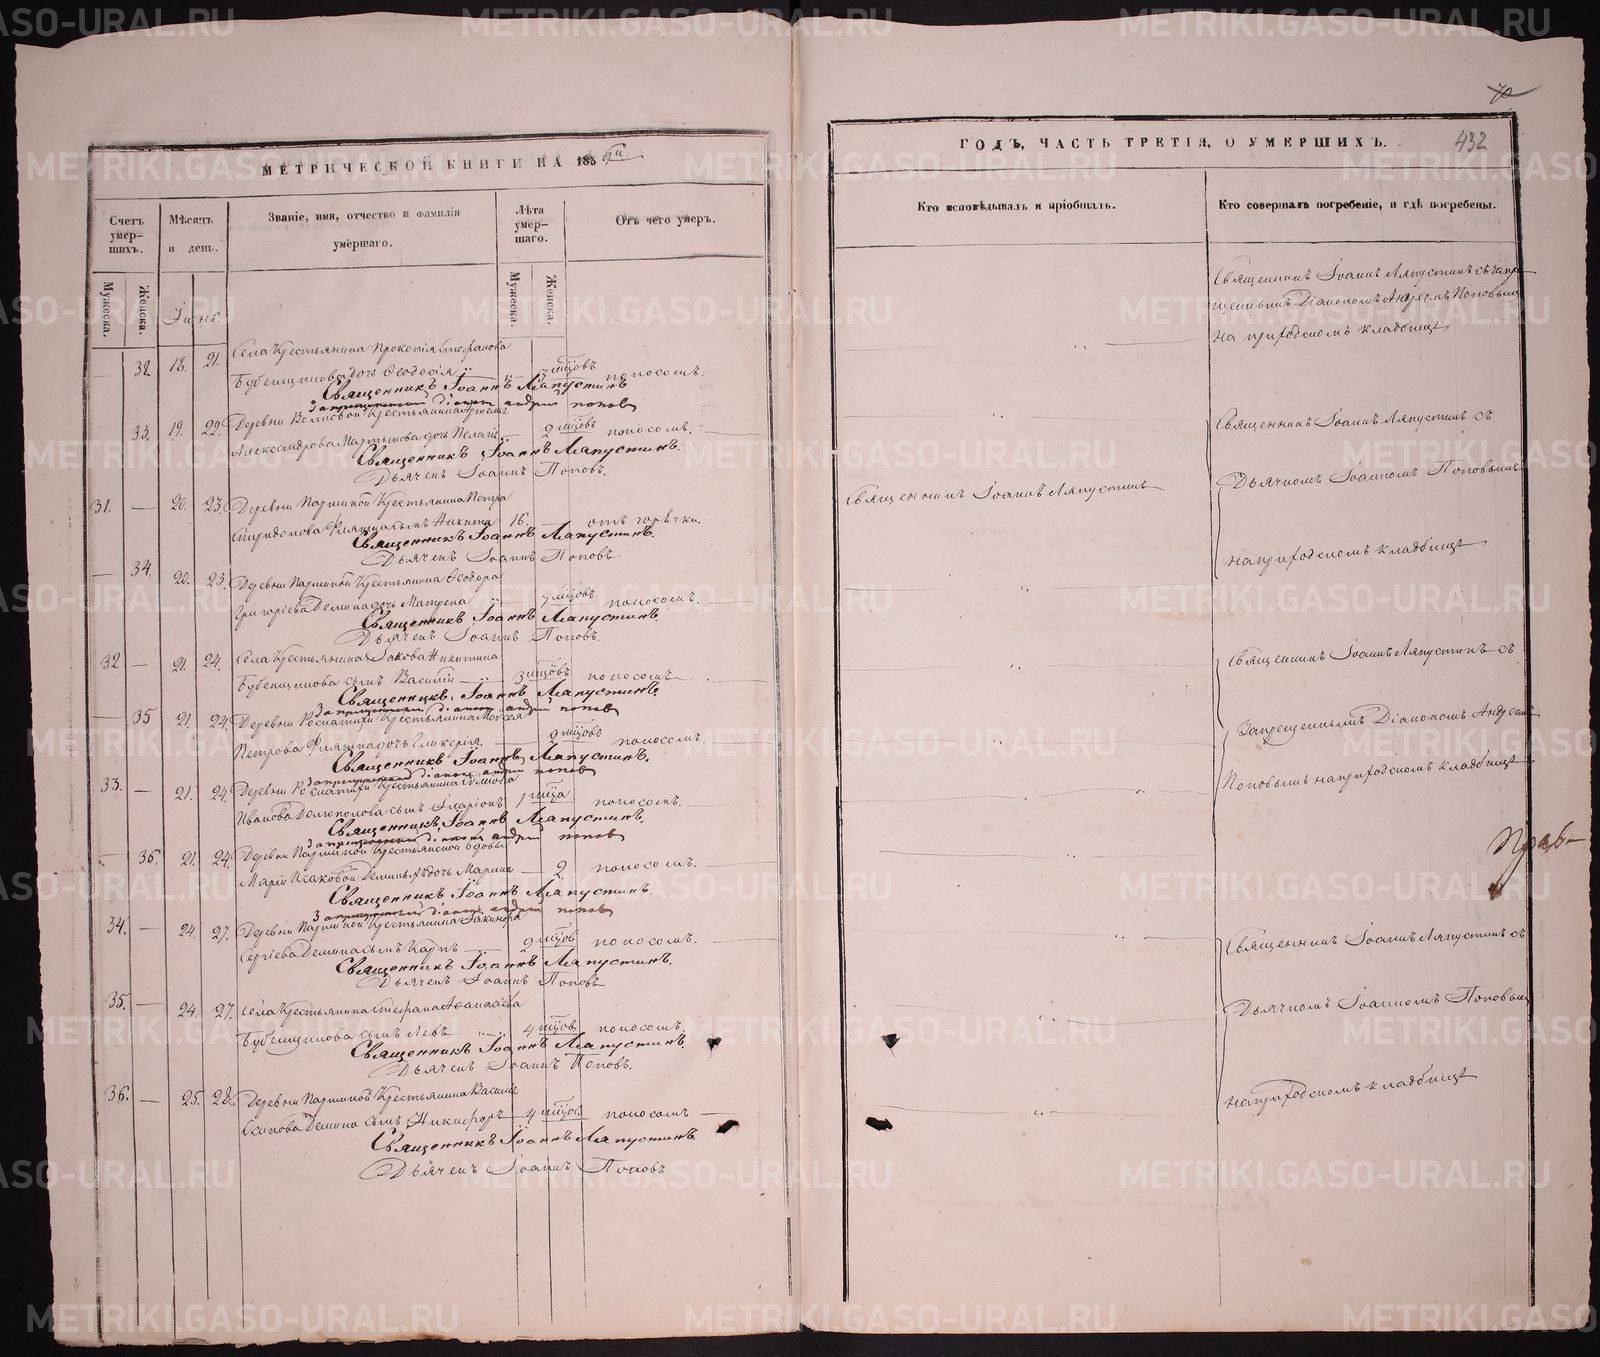 МЕТРИЧЕСКОЙ КНИГИ НА 185
Счетъ умер-шихъ.
Мѣсяцъ и день.
Званіе, имя, отчество и фамилія умершаго.
Лѣта умер-шаго.
Отъ чего умеръ.
Мужеска.
Женска.
Мужеска.
Женска.
Іюнь.
32 18. 21. Села Крестьянина Прокопія Стефанова
Бубенщикова дочь Ѳеодосія поносомъ.
Священникъ Іоаннъ Ляпустинъ
Запрещенный діаконъ андрей попов
33. 19. 22. Деревни Крестьянина
Александрова Мартынова дочь Пелагія 2 мцовъ поносомъ.
Священникъ Іоаннъ Ляпустинъ.
Дьячекъ Іоаннъ Поповъ.
31. — 20. 23. Деревни Паршиной Крестьянина Петра
Спиридонова сынъ Никита 16. отъ горячки.
Священникъ Іоаннъ Ляпустинъ.
Дьячекъ Іоаннъ Поповъ
— 34. 20. 23. Деревни Паршиной Крестьянина Ѳеодора
Григоріева Демина дочь Матрена мцовъ поносомъ.
Священникъ Іоаннъ Ляпустинъ.
Дьячекъ Іоаннъ Поповъ.
32 — 21. 24. Села Крестьянина Іакова Никитина
Бубенщикова сынъ Василій 3 мцовъ поносомъ
Священникъ Іоаннъ Ляпустинъ.
Запрещенный діаконъ андрей попов
— 35 21. 24. Деревни Крестьянина Моисея
Петрова дочь Гликерія мцовъ поносомъ.
Священникъ Іоаннъ Ляпустинъ.
Запрещенный діаконъ андрей попов
33. — 21. 24. Деревни Крестьянина
Иванова сынъ Иларіонъ 1 мца поносомъ.
Священникъ Іоаннъ Ляпустинъ.
Запрещенный діаконъ андрей попов
— 36. 21. 24. Деревни Паршиной Крестьянской вдовы
Маріи Исаковой дочь Марина — 2 поносомъ.
Священникъ Іоаннъ Ляпустинъ.
Запрещенный діаконъ андрей попов
34. — 24. 27. Деревни Паршиной Крестьянина
Сергіева Демина сынъ Карпъ мцов поносомъ.
Священникъ Іоаннъ Ляпустинъ.
Дьячекъ Іоаннъ Поповъ
35. — 24. 27. Села Крестьянина Стефана Аѳанасіева
Бубенщикова сынъ Левъ 4 мцов поносомъ.
Священникъ Іоаннъ Ляпустинъ.
Дьячекъ Іоаннъ Поповъ.
36. — 25. 28. Деревни Паршиной Крестьянина Василія
Осипова Демина сынъ Никифоръ 4 мцов поносомъ
Священникъ Іоаннъ Ляпустинъ
Дьячекъ Іоаннъ Поповъ
70
ГОДЪ, ЧАСТЬ ТРЕТІЯ, О УМЕРШИХЪ. 432
Кто исповѣдывалъ и пріобщалъ.
Кто совершалъ погребеніе, и гдѣ погребены.
Священникъ Іоаннъ Ляпустинъ съ запре-
щеннымъ Діакономъ Андреемъ Поповымъ
на приходскомъ кладбищѣ
Священникъ Іоаннъ Ляпустинъ съ
Дьячкомъ Іоанномъ Поповымъ
Священникъ Іоаннъ Ляпустинъ
на приходскомъ кладбищѣ
Священникъ Іоаннъ Ляпустинъ съ
Запрещеннымъ Діакономъ Андреемъ
Поповымъ на приходскомъ кладбищѣ
Священникъ Іоаннъ Ляпустинъ съ
Дьячкомъ Іоанномъ Поповымъ
на приходскомъ кладбищѣ
METRIKI.GASO-URAL.RU